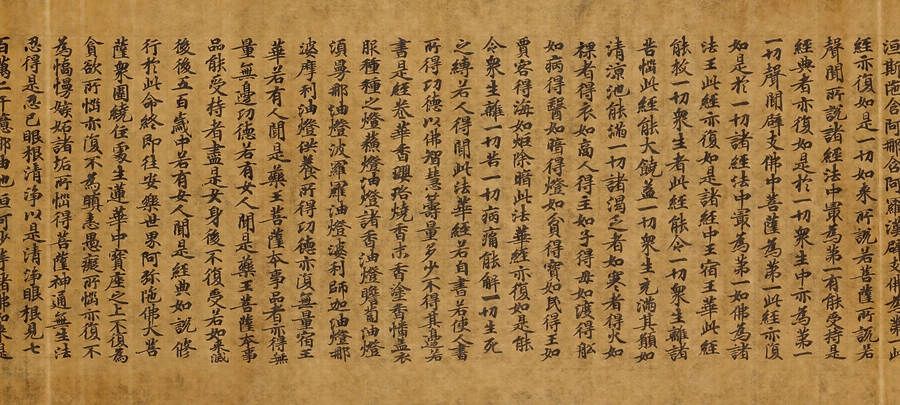 洹斯陀含阿那含阿羅漢辟支佛為第一此
經亦復如是一切如來所說若菩薩所說若
聲聞所說諸經法中冣為第一有能受持是
經典者亦復如是於一切衆生中亦為第一
一切聲聞辟支佛中菩薩為第一此經亦復
如是於一切諸經法中冣為第一如佛為諸
法王此經亦復如是諸經中王宿王華此經
能救一切衆生者此經能令一切衆生離諸
苦惱此經能大饒益一切衆生充滿其願如
清涼池能滿一切諸渴乏者如寒者得火如
裸者得衣如商人得主如子得母如渡得舩
如病得醫如暗得燈如貧得寶如民得王如
賈客得海如炬除暗此法華經亦復如是能
令衆生離一切苦一切病痛能解一切生死
之縛若人得聞此法華經若自書若使人書
所得功德以佛智慧籌量多少不得其邊若
書是經卷華香瓔珞燒香末香塗香幡蓋衣
服種種之燈蘇燈油燈諸香油燈瞻蔔油燈
須曼那油燈波羅羅油燈婆利師迦油燈那
婆摩利油燈供養所得功德亦復無量宿王
華若有人聞是藥王菩薩本事品者亦得無
量無邊功德若有女人聞是藥王菩薩本事
品能受持者盡是女身後不復受若如來滅
後後五百歲中若有女人聞是經典如說修
行於此命終即往安樂世界阿彌陀佛大菩
薩衆圍繞住處生蓮華中寶座之上不復為
貪欲所惱亦復不為瞋恚愚癡所惱亦復不
為憍慢嫉妬諸垢所惱得菩薩神通無生法
忍得是忍已眼根清淨以是清淨眼根見七
百萬二千億那由他恒河沙等諸佛如來是